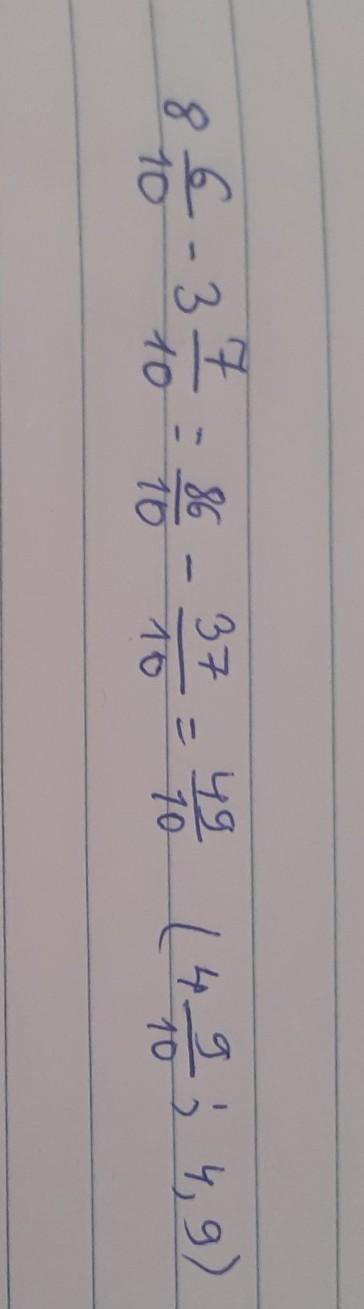 8 6/10 - 3 7/10 = 86/10 - 37/10 = 49/10 (4 9/10 ; 4,9)